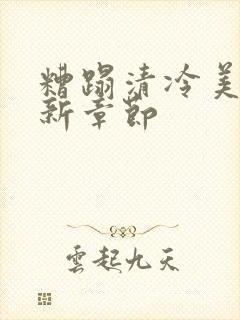 糟蹋清冷美
新章節
雲起九天